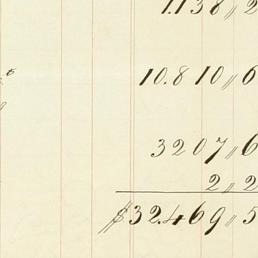 1.138 〃 2
10.810 〃 6
3207 〃 6
2 〃 2
$32.469 〃 5